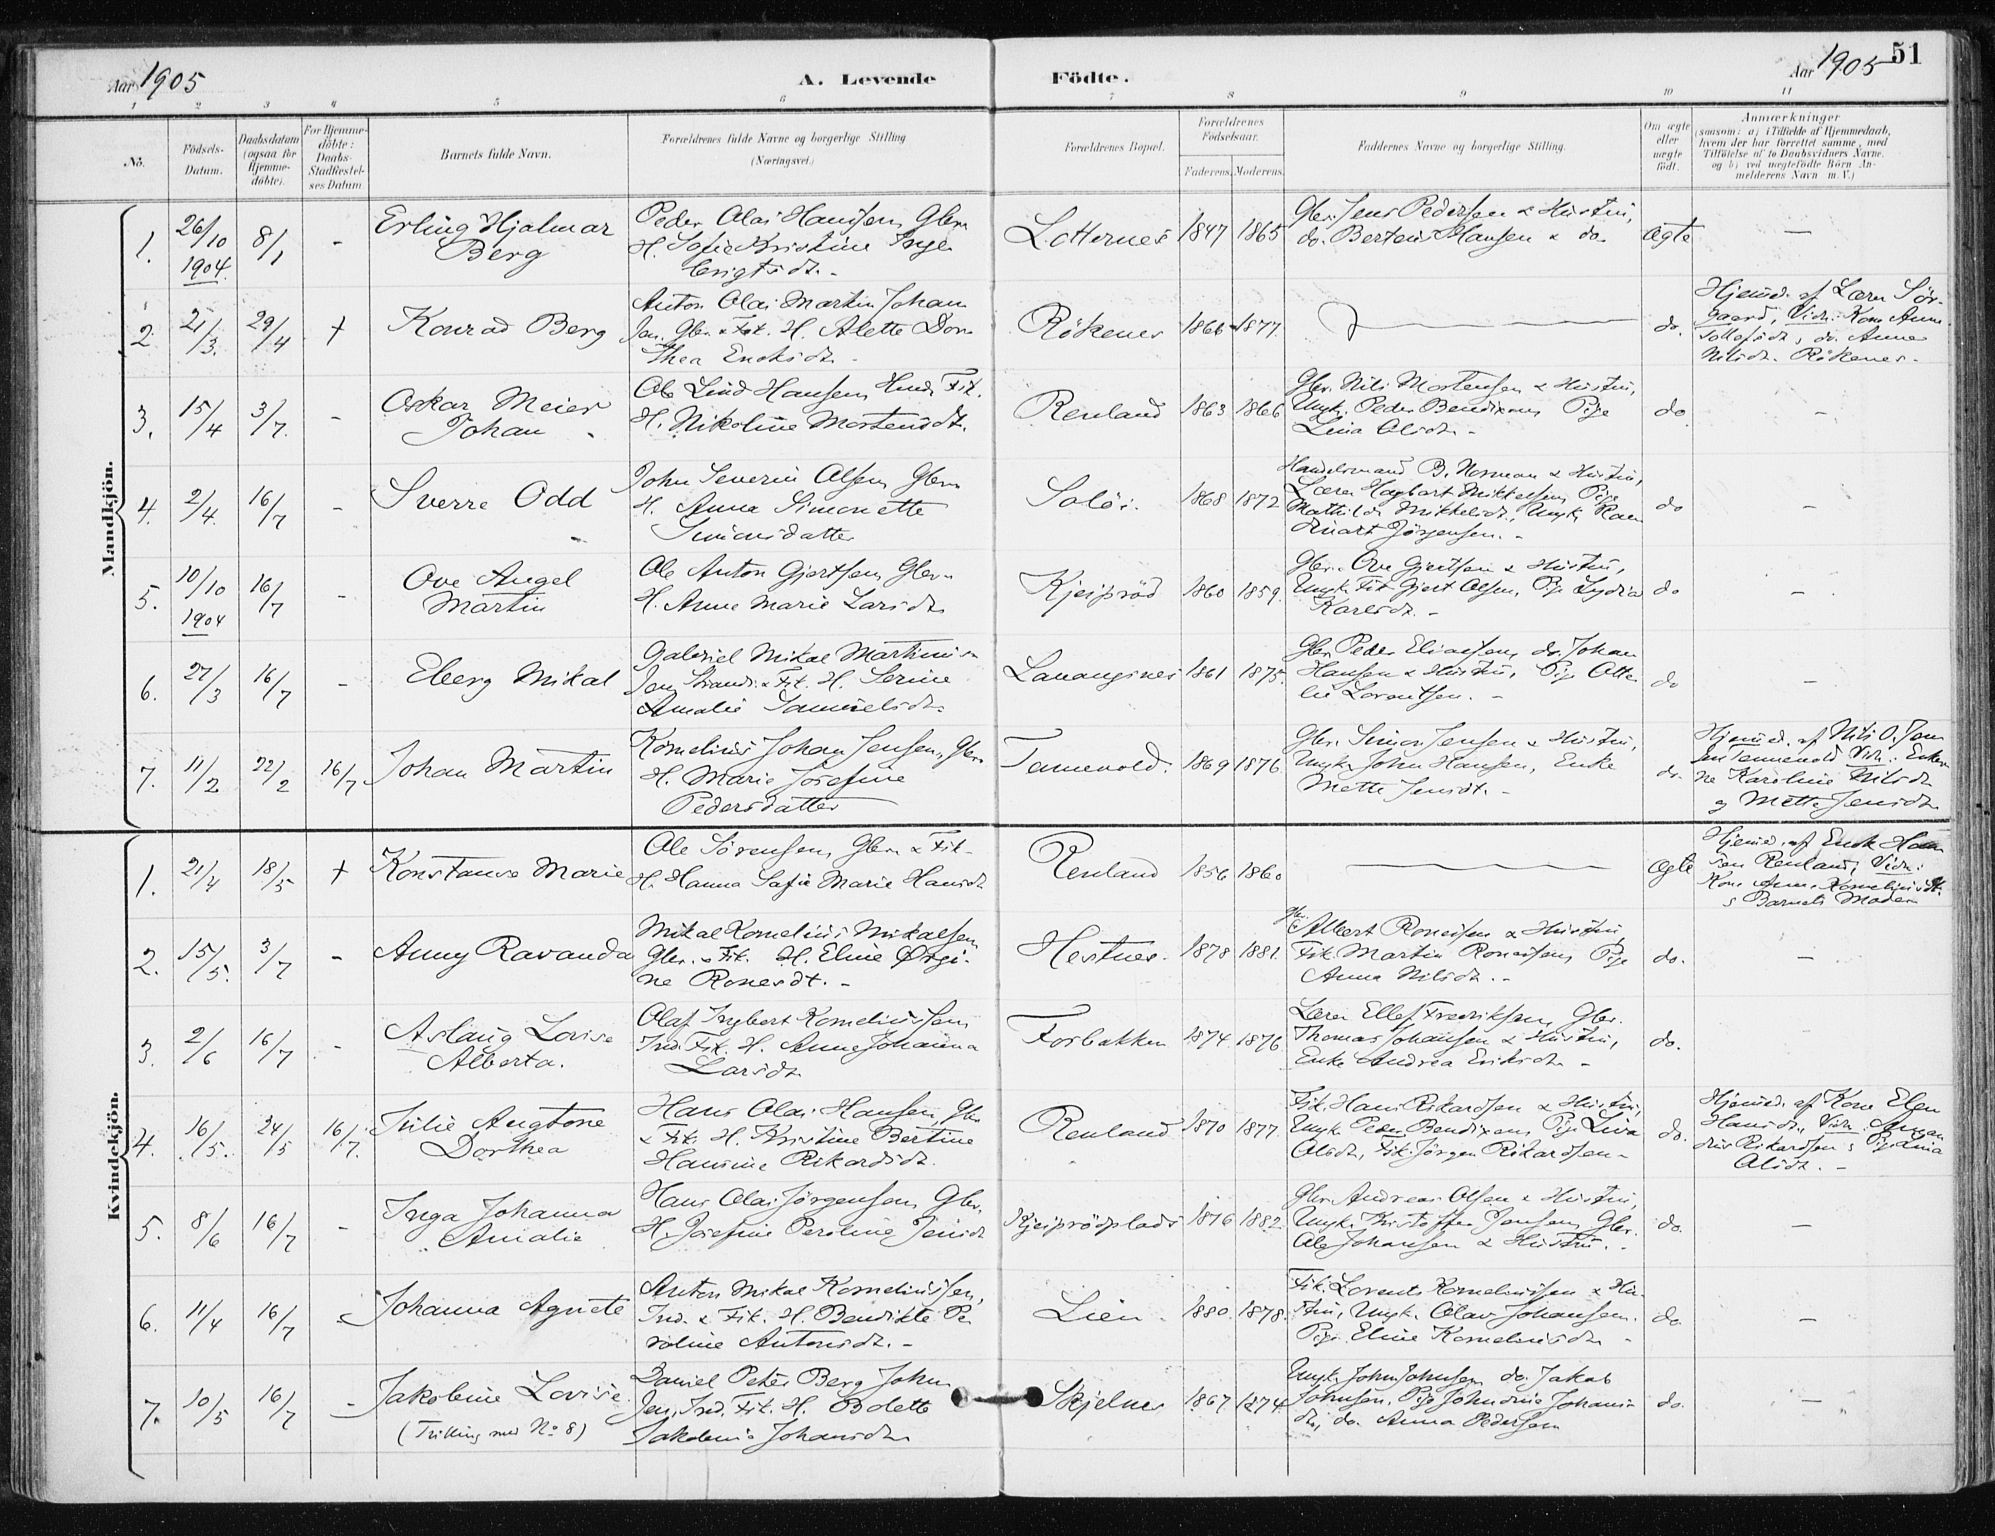 Aar 1905
A. Levende
Födte.
Aar 1905
51
1 2 3 4 5 6 7 8 9 10 11
No.
Födsels-
Datum.
Daabsdatum
(ogsaa for
Hjemme-
döbte).
For Hjemme-
döbte:
Daabs-
Stadfæstel-
ses Datum
Barnets fulde Navn.
Forældrenes fulde Navne og borgerlige Stilling
(Næringsvei.)
Forældrenes Bopæl.
Forældrenes
Födselsaar.
Faderens.
Moderens.
Faddernes Navne og borgerlige Stilling.
Om ægte
eller
uægte
födt.
Anmærkninger
(saasom: a) i Tilfælde af Hjemmedaab,
hvem der har forrettet samme, med
Tilföielse af to Daabsvidners Navne.
og b) ved uægtefödte Börn An-
melderens Navn m. V.)
Mandkjön.
1.
26/10
1904.
8/1
-
Erling Hjalmar
Berg
Peder Olai Hansen, Gbr.
H. Sofie Kristine Inge
brigtsdt. -
Lotternes
1847
1865
Gbr. Jens Pedersen & Hustru,
do. Hansen & do.
ægte
—
2.
21/3.
29/4
+
Konrad Berg
Anton Olai Martin Johan
sen, Gbr. & Fisk. H. Alette Doro
thea Enoksdt. -
Rökenes
1866
1877.
do.
Hjemd. af Lærer Sör-
gaard, Vidn. Kone Anne
Tollefsdt, do. Anne
Nilsdt. Rökenes.
3.
15/4
3/7.
-
Oskar Meier
Johan
Ole Lind Hansen, Fisk.
H. Nikoline Mortensdt.
Renland
1863
1866
Gbr. Nils Mortensen & Hustru,
Ungk. Peder Bendixen, Pige
Lina Olsdt. -
do
-
4.
2/4.
16/7
-
Sverre Odd
John Severin Olsen, Gbr.
H. Anna Simonette
Simonsdatter
Salöi.
1868
1872
Handelsmand B. Norman & Hustru,
Lærer Hagbart Mikkelsen, Pige
Mathilde Mikkelsdt., Ungk.
Jörgensen. -
do
-
5.
10/10
1904
16/7
-
Ove Angel
Martin
Ole Anton Gjertsen, Gbr.
H. Anne Marie Larsdt.
Kjeipröd
1860
1859.
Gbr. Ove Gjertsen & Hustru,
Ungk. Fisk. Gjert Olsen, Pige Lydia
Karlsdt. -
do
-
6.
27/3
16/7
-
Eberg Mikal
Gabriel Mikal Martinus
sen, Strands. & Fisk. H. Serine
Amalie Samuelsdt.
Lavangsnes
1861
1875.
Gbr. Peder Eliassen, do. Johan
Hansen & Hustru, Pige Otte
lie Lorentsen. -
do
-
7.
11/2
22/2
16/7
Johan Martin
Kornelius Johan Jensen, Gbr.
H. Marie Josefine
Pedersdatter
Tennevold.
1869
1876
Gbr. Simon Jensen & Hustru,
Ungk. John Hansen, Enke
Mette Jensdt. -
do.
Hjemd. af Nils O. Jen
sen Tennevold Vidn. Enker
ne Karoline Nilsdt.
og Mette Jensdt.
Kvindekjön.
1.
21/4
18/5
+
Konstanse Marie
Ole Sörensen, Gbr. & Fisk.
H. Hanna Sofie Marie Hansdt.
Renland
1856
1860
ægte
Hjemd. af Enok Han
sen Renland, Vidn:
Kone Anne Korneliusdt.
& Barnets Moder
2.
15/5.
3/7
-
Anny Ravanda
Mikal Kornelius Mikalsen,
Gbr. & Fisk. H. Eline Ørgi-
ne Ronesdt. -
Hestnes.
1878
1881.
Gbr.
Albert Ronessen & Hustru,
Fisk. Martin Ronessen, Pige
Anna Nilsdt. -
do.
-
3.
2/6
16/7
-
Aslaug Lovise
Alberta.
Olaf Ingbert Korneliussen,
Ind. Fisk. H. Anne Johanna
Larsdt.
Forbakken
1874
1876
Lærer Ellef Fredriksen, Gbr.
Thomas Johansen & Hustru,
Enke Andrea Eriksdt. -
do.
4.
16/5.
24/5
16/7.
Julie Angtone
Dorthea
Hans Olai Hansen, Gbr.
& Fisk. H. Kristine Bertine
Hansine Rikardsdt.
Renland
1870
1877.
Fisk. Hans Rikardsen & Hustru,
Ungk. Peder Bendixen, Pige Lina
Olsdt., Fisk. Jörgen Rikardsen -
do.
Hjemd. af Kone Elen
Hansdt, Vidn.
Rikardsen & Pige Lina
Olsdt. -
5.
8/6
16/7
-
Inga Johanna
Amalie
Hans Olai Jörgensen, Gbr.
H. Josefine Peroline Jensdt
Kjeiprödplads
1876
1882.
Gbr. Andreas Olsen & Hustru,
Ungk. Kristoffer Jensen, Gbr.
Ole Johansen & Hustru. -
do.
—
6.
11/4
16/7
-
Johanna Agnete
Anton Mikal Korneliussen,
Ind. & Fisk. H. Bendikte Pe
roline Antonsdt. -
Lien.
1880.
1878.
Fisk. Lorents Korneliussen & Hu-
stru, Ungk. Olav Johansen.
Pige Eline Korneliusdt. -
do.
—
7.
10/5
16/7
-
Jakobine Lovise
(Trilling med No 8)
Daniel Peter Berg John
sen, Ind. Fisk. H. Bolette
Jakobine Johansdt.
Skjelnes
1867
1874
Ungk. John Johnsen, do. Jakob
Johnsen, Pige Johans
dt, do. Anna Pedersen
do.
—